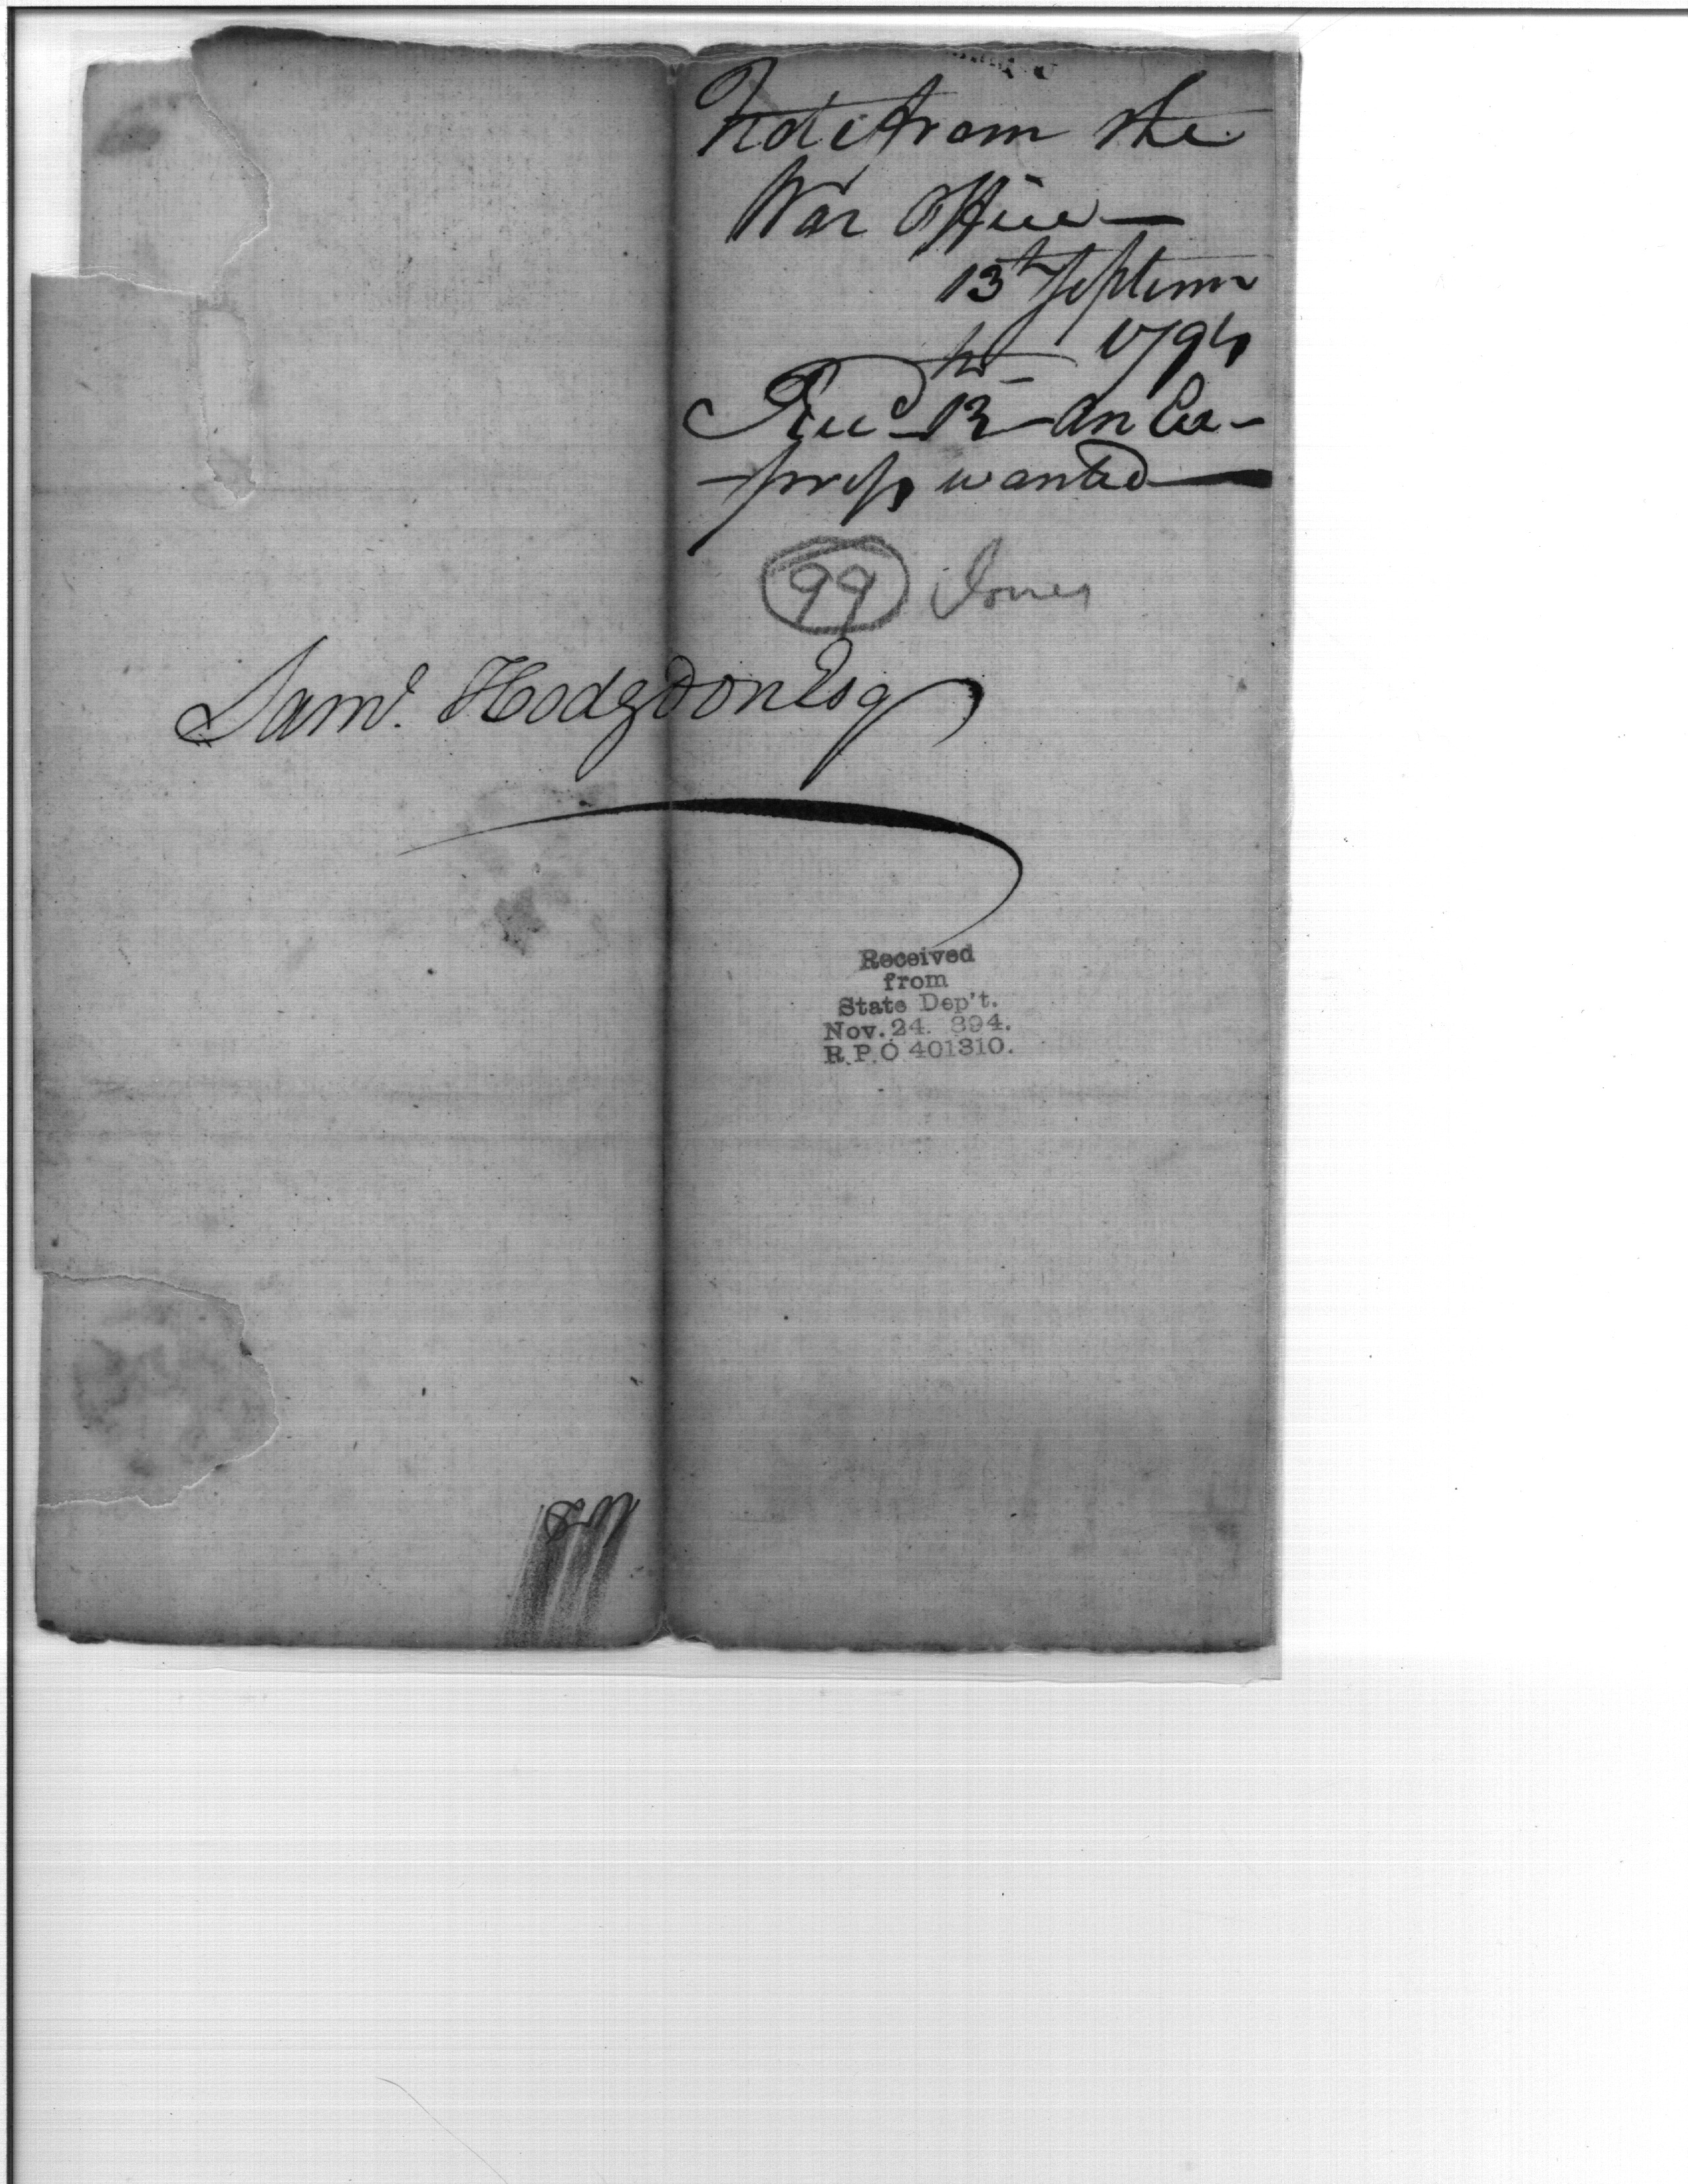 Note from the
War Office —
13th Septem
br 1794
Recd 13 — An Ex-
-press wanted —
99 Jones
Saml. Hodgdon Esq
Received
from
State Dep't.
Nov. 24. 894.
R.P.O 401310.